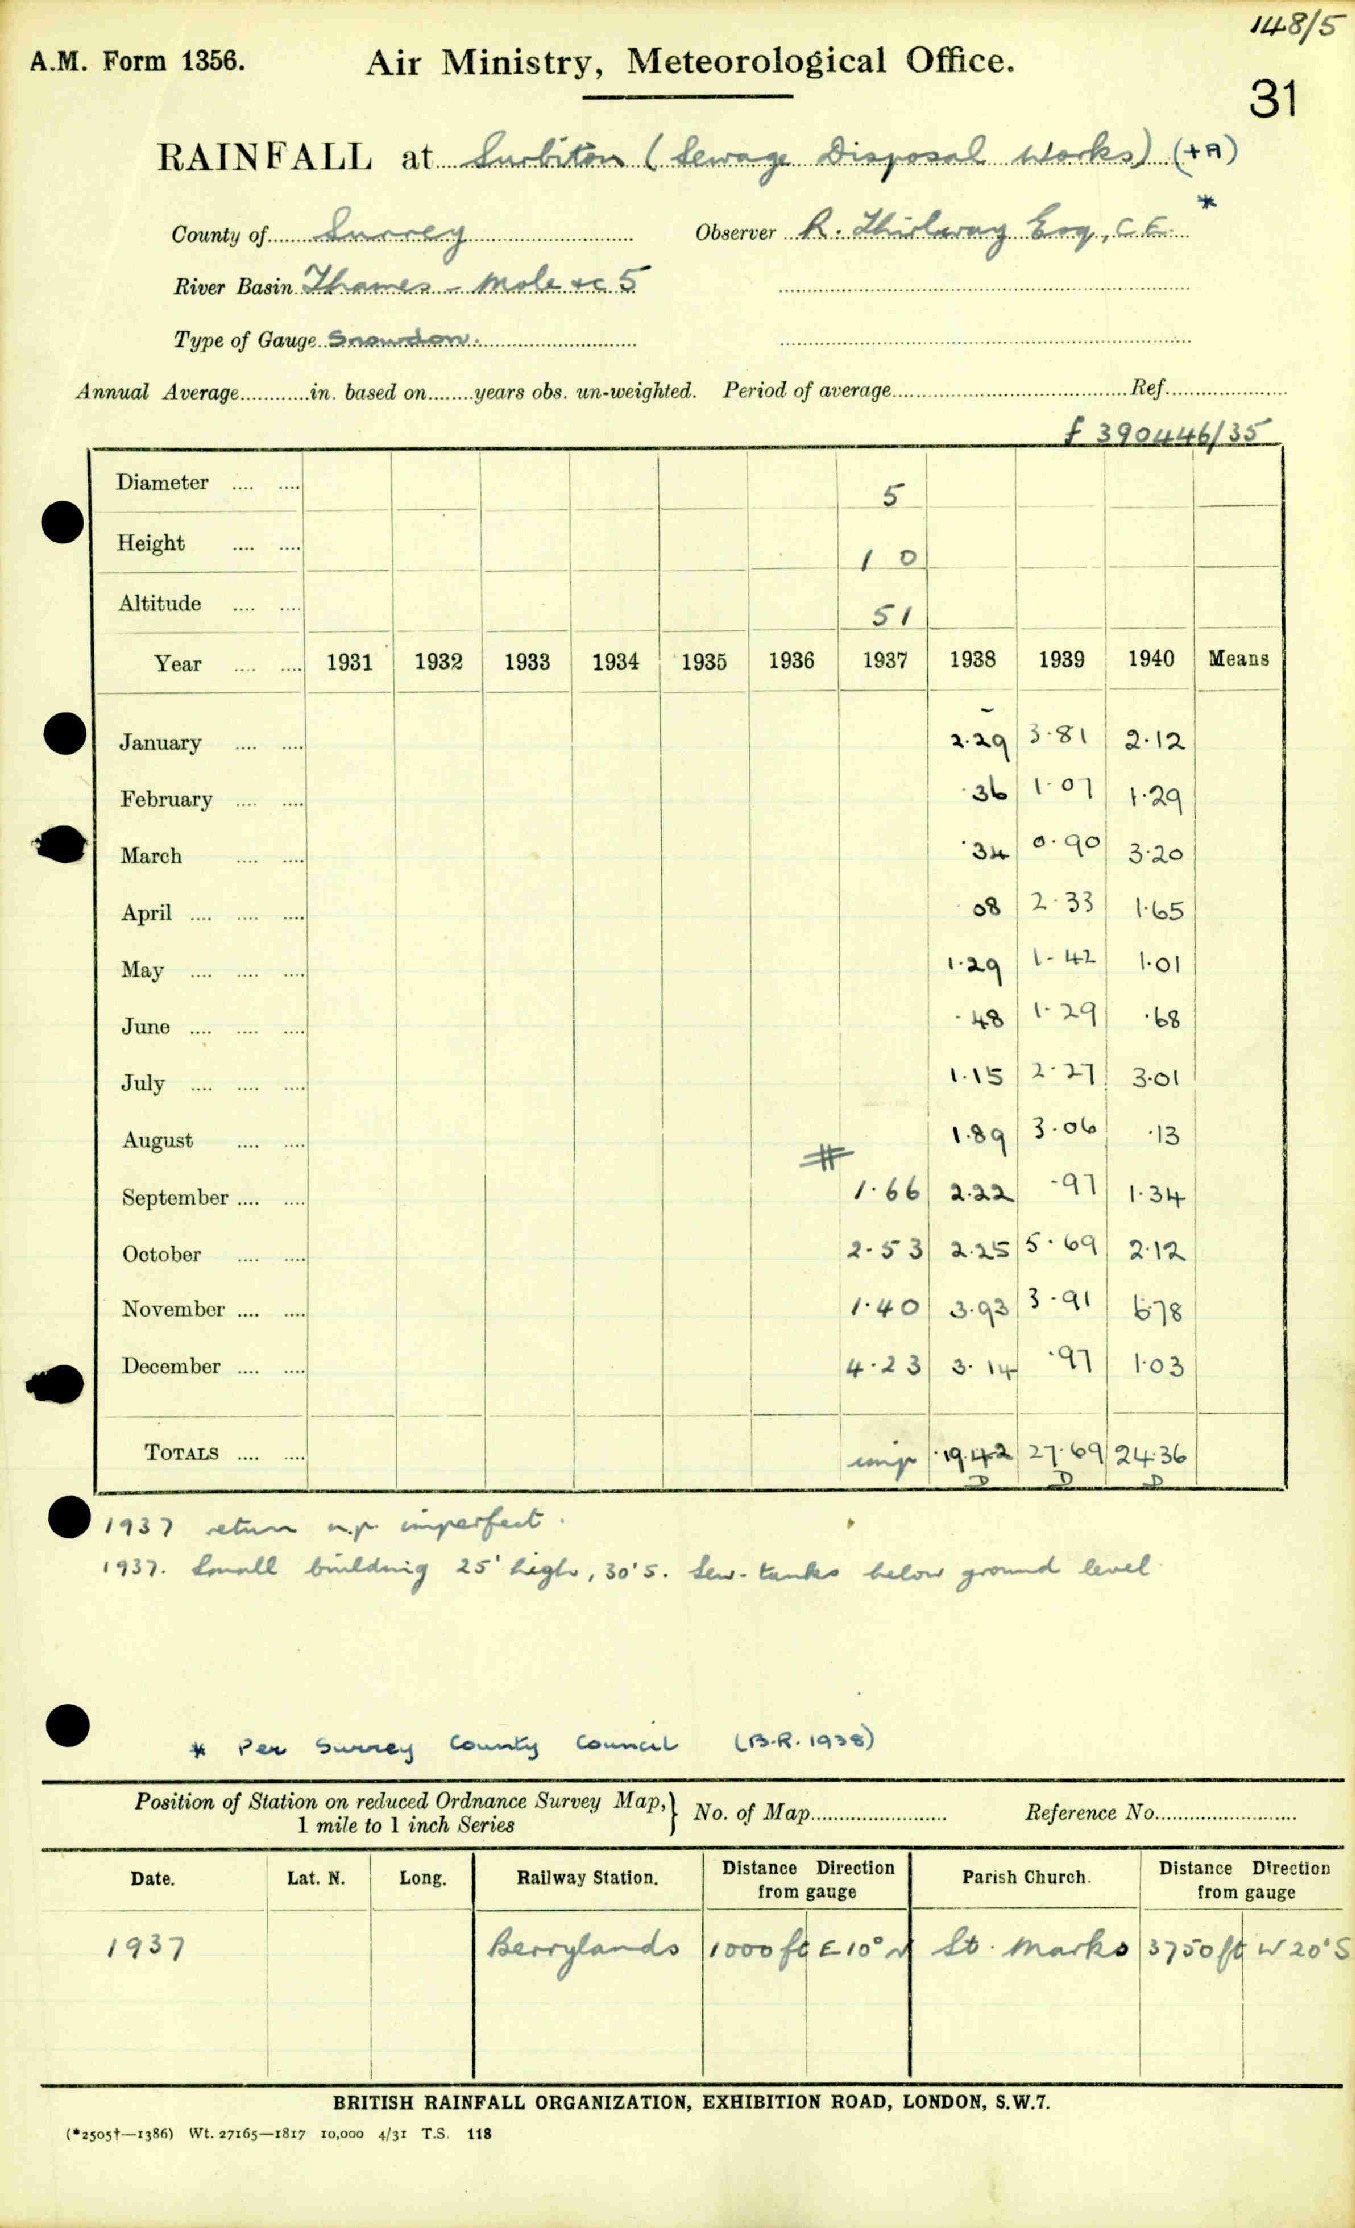 148/5
A.M. Form 1356. Air Ministry, Meteorological Office.
31
RAINFALL at Surbiton (Sewage Disposal Works) (+A)
County of Surrey Observer R. Thirlway Esq, C.E. *
River Basin Thames - Mole &c 5
Type of Gauge Snowdon.
Annual Average............in. based on........years obs. un-weighted. Period of average............Ref............
f 390446/35
Diameter .... .... 5
Height .... .... 1 0
Altitude .... .... 51
Year .... .... 1931 1932 1933 1934 1935 1936 1937 1938 1939 1940 Means
January .... .... 2.29 3.81 2.12
February .... .... .36 1.07 1.29
March .... .... .34 0.90 3.20
April .... .... .... 08 2.33 1.65
May .... .... .... 1.29 1.42 1.01
June .... .... .... .48 1.29 .68
July .... .... .... 1.15 2.27 3.01
August .... .... 1.89 3.06 .13
September .... .... # 1.66 2.22 .97 1.34
October .... .... 2.53 2.25 5.69 2.12
November .... .... 1.40 3.93 3.91 6.78
December .... .... 4.23 3.14 .97 1.03
TOTALS .... .... imp 19.42 27.69 24.36
D D D
1937 return n.p. imperfect.
1937. Small building 25' high, 30' S. Sew. tanks below ground level
* Per Surrey County Council (B.R. 1938)
Position of Station on reduced Ordnance Survey Map, 1 mile to 1 inch Series } No. of Map............ Reference No............
Date. Lat. N. Long. Railway Station. Distance Direction from gauge Parish Church. Distance Direction from gauge
1937 Berrylands 1000 ft E 10° N St. Marks 3750 ft W 20° S
BRITISH RAINFALL ORGANIZATION, EXHIBITION ROAD, LONDON, S.W.7.
(*2505†—1386) Wt. 27165—1817 10,000 4/31 T.S. 118